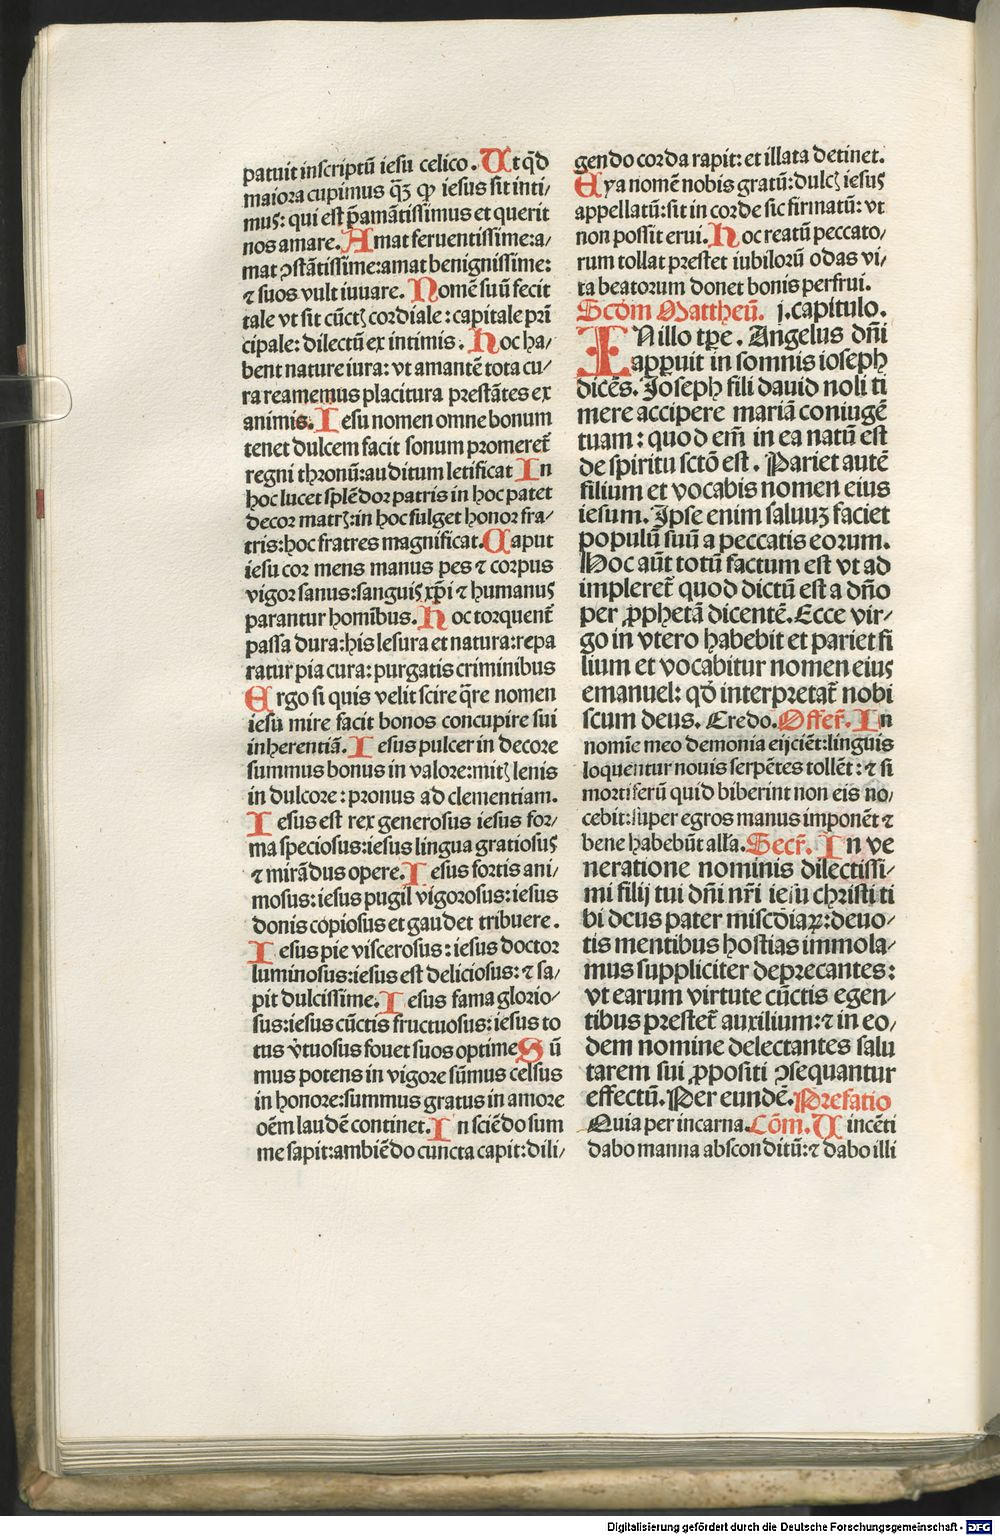 patuit inscriptū iesu celico. Ut qd̄
maiora cupimus qȝ̄ ꝙ iesus sit inti/
musꝰ: qui est p̄amātissimus et querit
nos amare. Amat feruentissime:a/
mat ꝯstātissime:amat benignissime:
⁊ suos vult iuuare. Nomē suū fecit
tale vt sit cūctꝭ cordiale: capitale prī
cipale: dilectū ex intimis. Hoc ha/
bent nature iura: vt amantē tota cu/
ra reamemus placitura prestātes ex
animis. Iesu nomen omne bonum
tenet dulcem facit sonum promeret̄
regni thronū:auditum letificat In
hoc lucet splēdor patris in hoc patet
decor matrꝭ:in hoc fulget honor fra/
tris:hoc fratres magnificat. Caput
iesu cor mens manus pes ⁊ corpus
vigor sanus:sanguiꝰ xp̄i ⁊ humanus
parantur homībus. Hoc torquent̄
passa dura:his lesura et natura:repa
ratur pia cura: purgatis criminibus
Ergo si quis velit scire q̄re nomen
iesu mire facit bonos concupire sui
inherentiā. Iesus pulcer in decore
summus bonus in valore:mitꝭ lenis
in dulcore: pronus ad clementiam.
Iesus est rex generosus iesus for/
ma speciosus:iesus lingua gratiosꝰ
⁊ mirādus opere. Iesus fortis ani/
mosus: iesus pugil vigorosus: iesus
donis copiosus et gaudet tribuere.
Iesus pie viscerosus: iesus doctor
luminosus:iesus est deliciosus: ⁊ sa/
pit dulcissime. Iesus fama glorio/
sus:iesus cūctis fructuosus: iesus to
tus v̓tuosus fouet suos optime Sū
mus potens in vigore sūmus celsus
in honore:summus gratus in amore
oēm laudē continet. In sciēdo sum
me sapit:ambiēdo cuncta capit: dili/
gendo corda rapit: et illata detinet.
Eya nomē nobis gratū: dulcꝭ iesꝰ
appellatū:sit in corde sic firmatū: vt
non possit erui. Hoc reatū peccato/
rum tollat prestet iubilorū odas vi/
ta beatorum donet bonis perfrui.
Scd̄m Mattheū. j. capitulo.
IN illo tp̄e. Angelus dn̄i
apꝑuit in somnis ioseph
dicēs. Joseph fili dauid noli ti
mere accipere mariā coniugē
tuam: quod em̄ in ea natū est
de spiritu sctō est. Pariet autē
filium et vocabis nomen eius
iesum. Ipse enim saluuȝ faciet
populū suū a peccatis eorum.
Hoc aūt totū factum est vt ad
impleret̄ quod dictū est a dn̄o
per ꝓphetā dicentē. Ecce vir/
go in vtero habebit et pariet fi
lium et vocabitur nomen eiꝰ
emanuel: qd̓ interpretat̄ nobi
scum deus. Credo. Offer̄. In
nomīe meo demonia eijciēt: linguis
loquentur nouis serpētes tollēt: ⁊ si
mortiferū quid biberint non eis no/
cebit: super egros manus imponēt ⁊
bene habebūt all̄a. Secr̄. In ve
neratione nominis dilectissi/
mi filij tui dn̄i nr̄i iesu christi ti
bi deus pater miscd̓iaꝝ: deuo/
tis mentibus hostias immola/
mus suppliciter deprecantes:
vt earum virtute cūctis egen/
tibus prestet̄ auxilium: ⁊ in eo/
dem nomine delectantes salu
tarem sui ꝓpositi ꝯsequantur
effectū. Per eundē. Prefatio
Quia per incarna. Cōm. Uincēti
dabo manna absconditū: ⁊ dabo illi
Digitalisierung gefördert durch die Deutsche Forschungsgemeinschaft - DFG